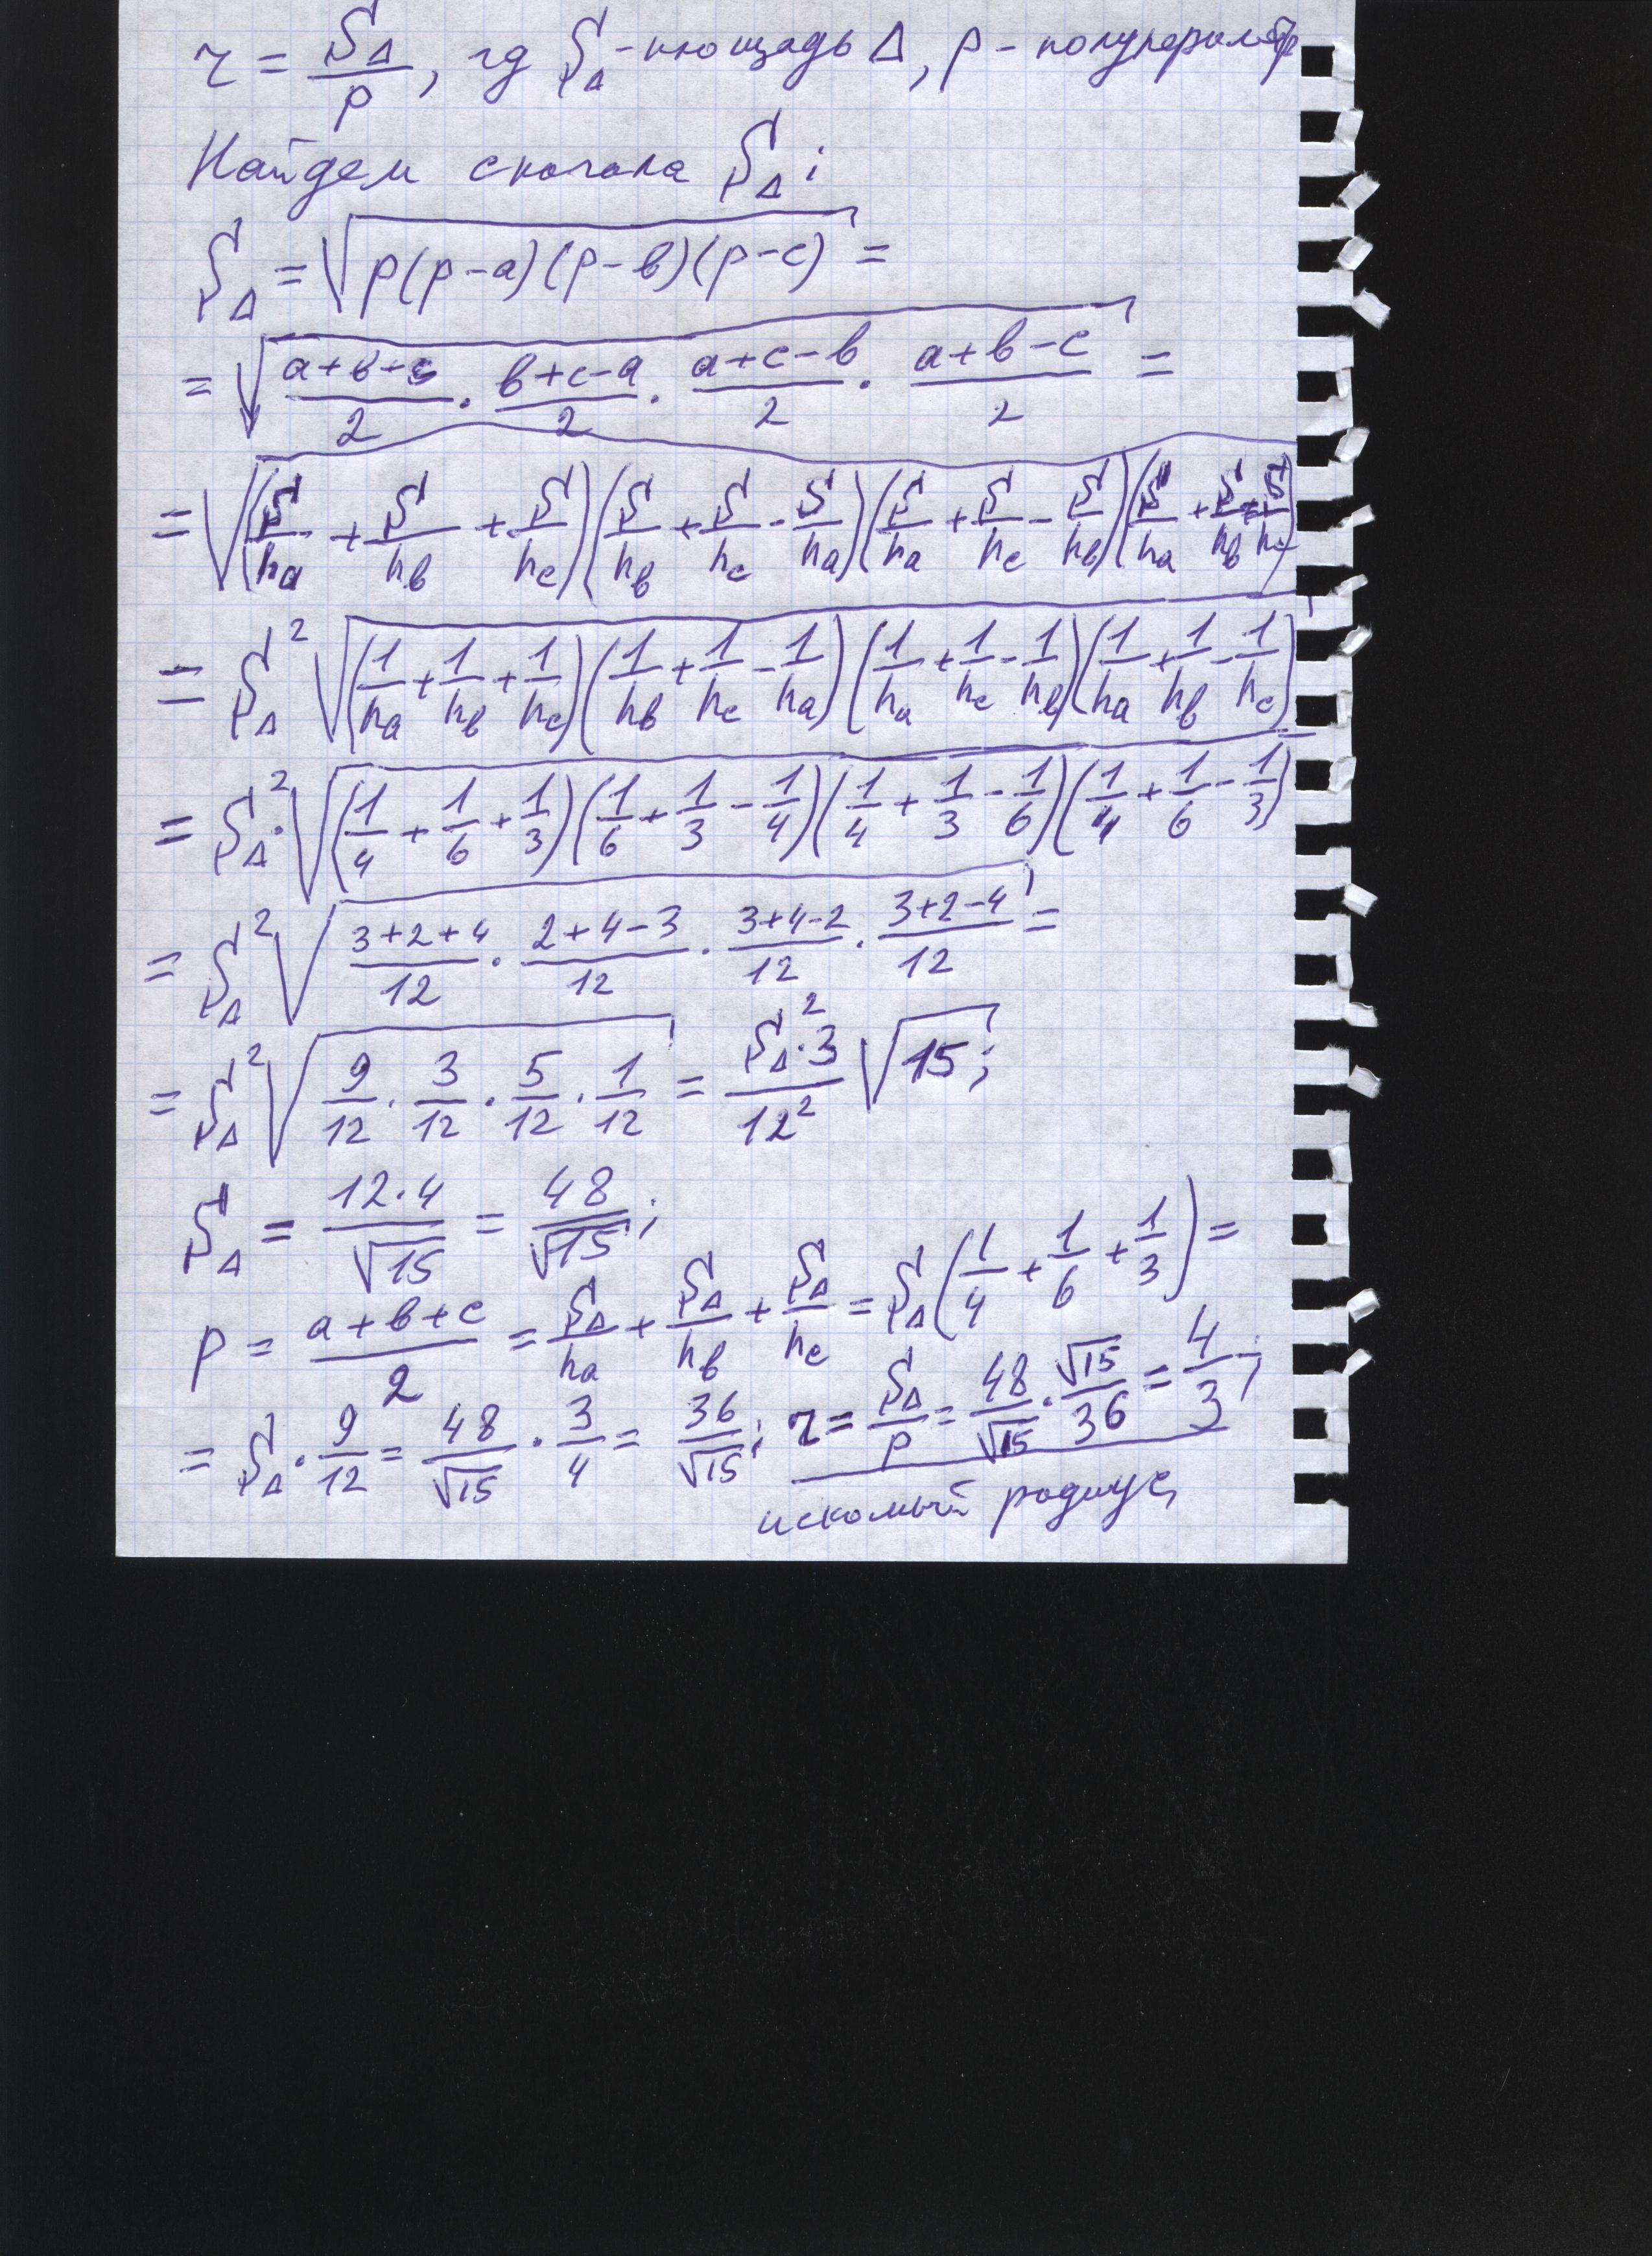 r = S_Δ / p, гд S_Δ - площадь Δ, p - полупериметр
Найдем сначала S_Δ:
S_Δ = √(p(p-a)(p-в)(p-c)) =
= √((a+в+c)/2 · (в+c-a)/2 · (a+c-в)/2 · (a+в-c)/2) =
= √((S/h_a + S/h_в + S/h_c)(S/h_в + S/h_c - S/h_a)(S/h_a + S/h_c - S/h_в)(S/h_a + S/h_в - S/h_c))
= S_Δ² √((1/h_a + 1/h_в + 1/h_c)(1/h_в + 1/h_c - 1/h_a)(1/h_a + 1/h_c - 1/h_в)(1/h_a + 1/h_в - 1/h_c))
= S_Δ² · √((1/4 + 1/6 + 1/3)(1/6 + 1/3 - 1/4)(1/4 + 1/3 - 1/6)(1/4 + 1/6 - 1/3))
= S_Δ² √((3+2+4)/12 · (2+4-3)/12 · (3+4-2)/12 · (3+2-4)/12) =
= S_Δ² √(9/12 · 3/12 · 5/12 · 1/12) = (S_Δ² · 3)/12² √15;
S_Δ = (12·4)/√15 = 48/√15;
p = (a+в+c)/2 = S_Δ/h_a + S_Δ/h_в + S_Δ/h_c = S_Δ(1/4 + 1/6 + 1/3) =
= S_Δ · 9/12 = 48/√15 · 3/4 = 36/√15; r = S_Δ/p = 48/√15 · √15/36 = 4/3;
искомый радиус